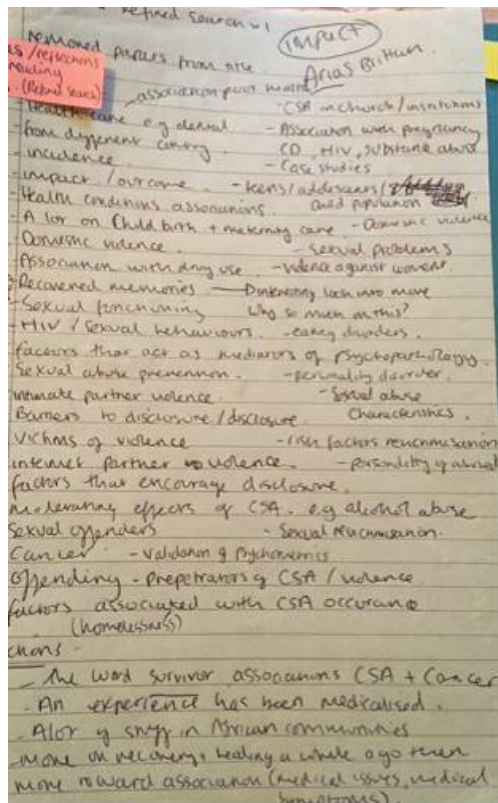 Refined Search 1
impact
removed papers from title
Arias Brittan.
s/reflections
reading
(Refine Search)
association poor health
Healthcare e.g dental - CSA in church/institutions
from different country - Association with pregnancy
- incidence CD, HIV, substance abuse
- Case studies
- impact/outcome - teens/addescents/
Health conditions associations. population
A lot on Child birth + maternity care - Domestic violence
- Domestic violence - Sexual problems
- Association with drug use - violence against women
Recovered memories — Interesting look into more
- Sexual functioning Why so much on this?
- HIV / Sexual behaviours. - eating disorders.
factors that act as mediators of psychopathology
Sexual abuse prevention. - personality disorder.
intimate partner violence - Sexual abuse
Barriers to disclosure/disclosure Characteristics.
Victims of violence - risk factors revictimisation
internet partner violence. - personality of
factors that encourage disclosure.
moderating effects of CSA. e.g alcohol abuse
Sexual offenders - Sexual
Cancer - validation of Psychometrics
Offending - Prepetrators of CSA / violence
factors associated with CSA occurance
(homelessness)
- The word survivor associations CSA + Cancer
- An experience has been medicalised.
- A lot of stuff in African communities
- more on recovery, healing a while ago then
more toward association (medical issues, medical
symptoms)